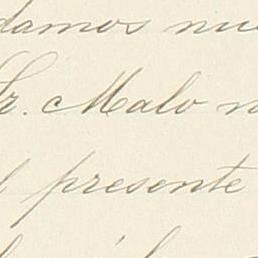 damos nue
Sr. Malo n
l presente